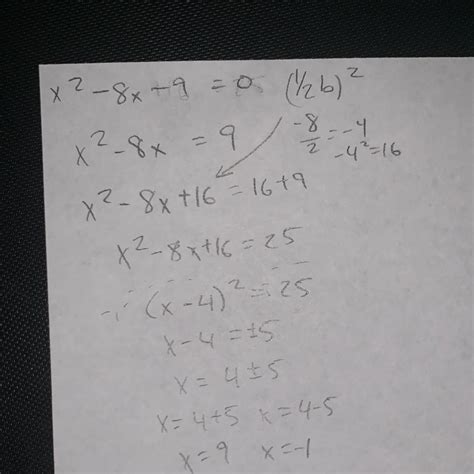 x² - 8x - 9 = 0 (½b)²
x² - 8x = 9 -8/2 = -4
-4² = 16
x² - 8x + 16 = 16 + 9
x² - 8x + 16 = 25
(x - 4)² = 25
x - 4 = ±5
x = 4 ± 5
x = 4 + 5 x = 4 - 5
x = 9 x = -1